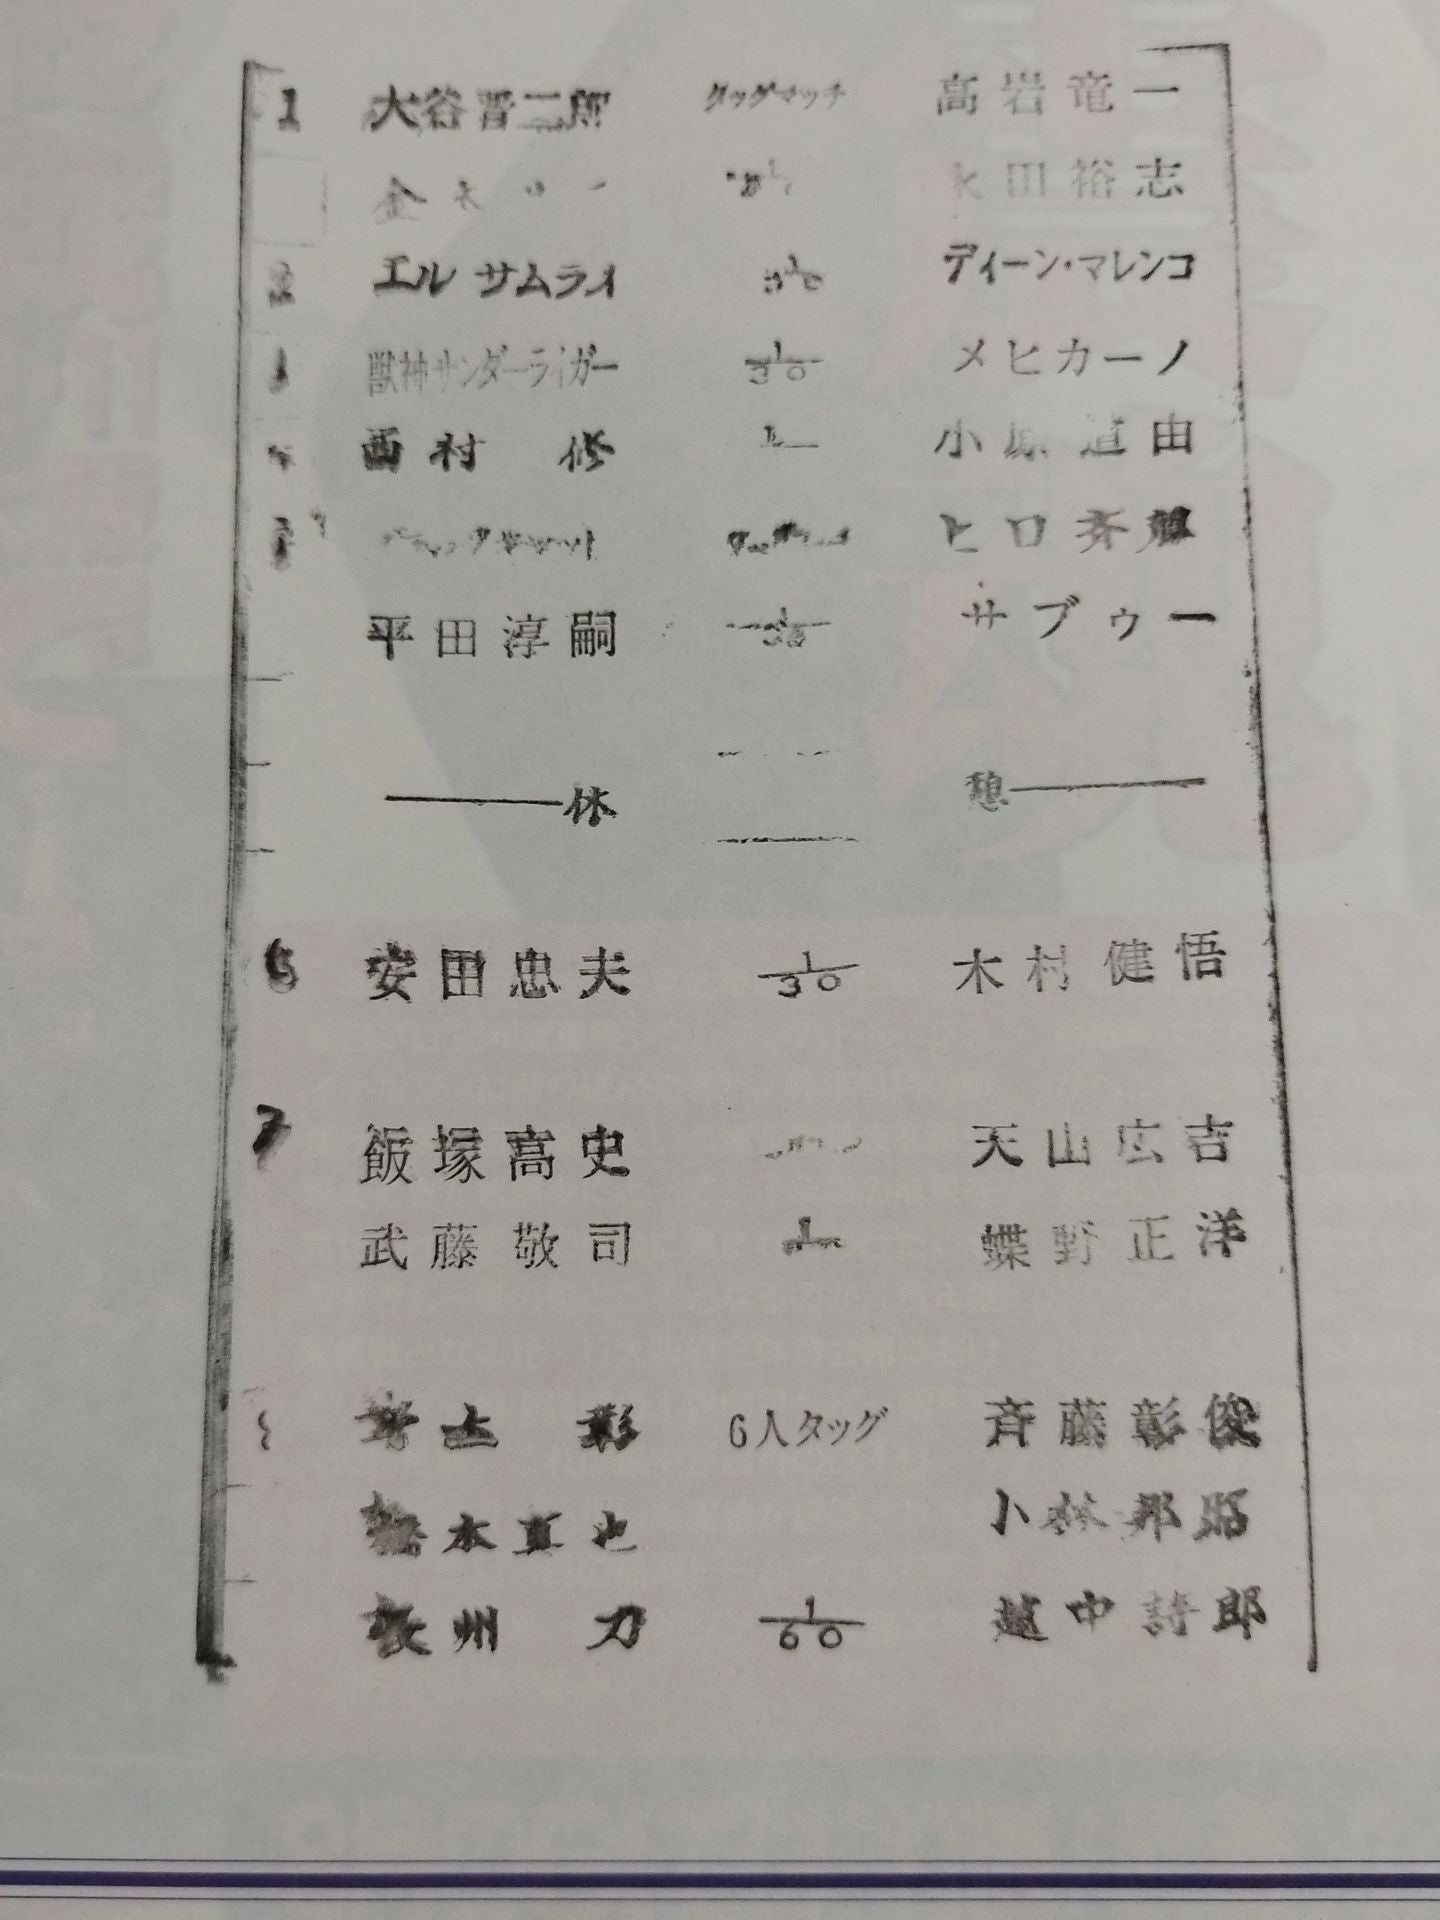 1 大谷晋二郎 タッグマッチ 高岩竜一
金 永田裕志
2 エル サムライ 1/30 ディーン・マレンコ
獣神サンダーライガー 1/30 メヒカーノ
西村 修 小原道由
ブラックキャット ヒロ斉藤
平田淳嗣 1/30 サブゥー
休 憩
6 安田忠夫 1/30 木村健悟
7 飯塚高史 天山広吉
武藤敬司 蝶野正洋
彰 6人タッグ 斉藤彰俊
橋本真也 小林邦昭
長州 力 1/60 越中詩郎